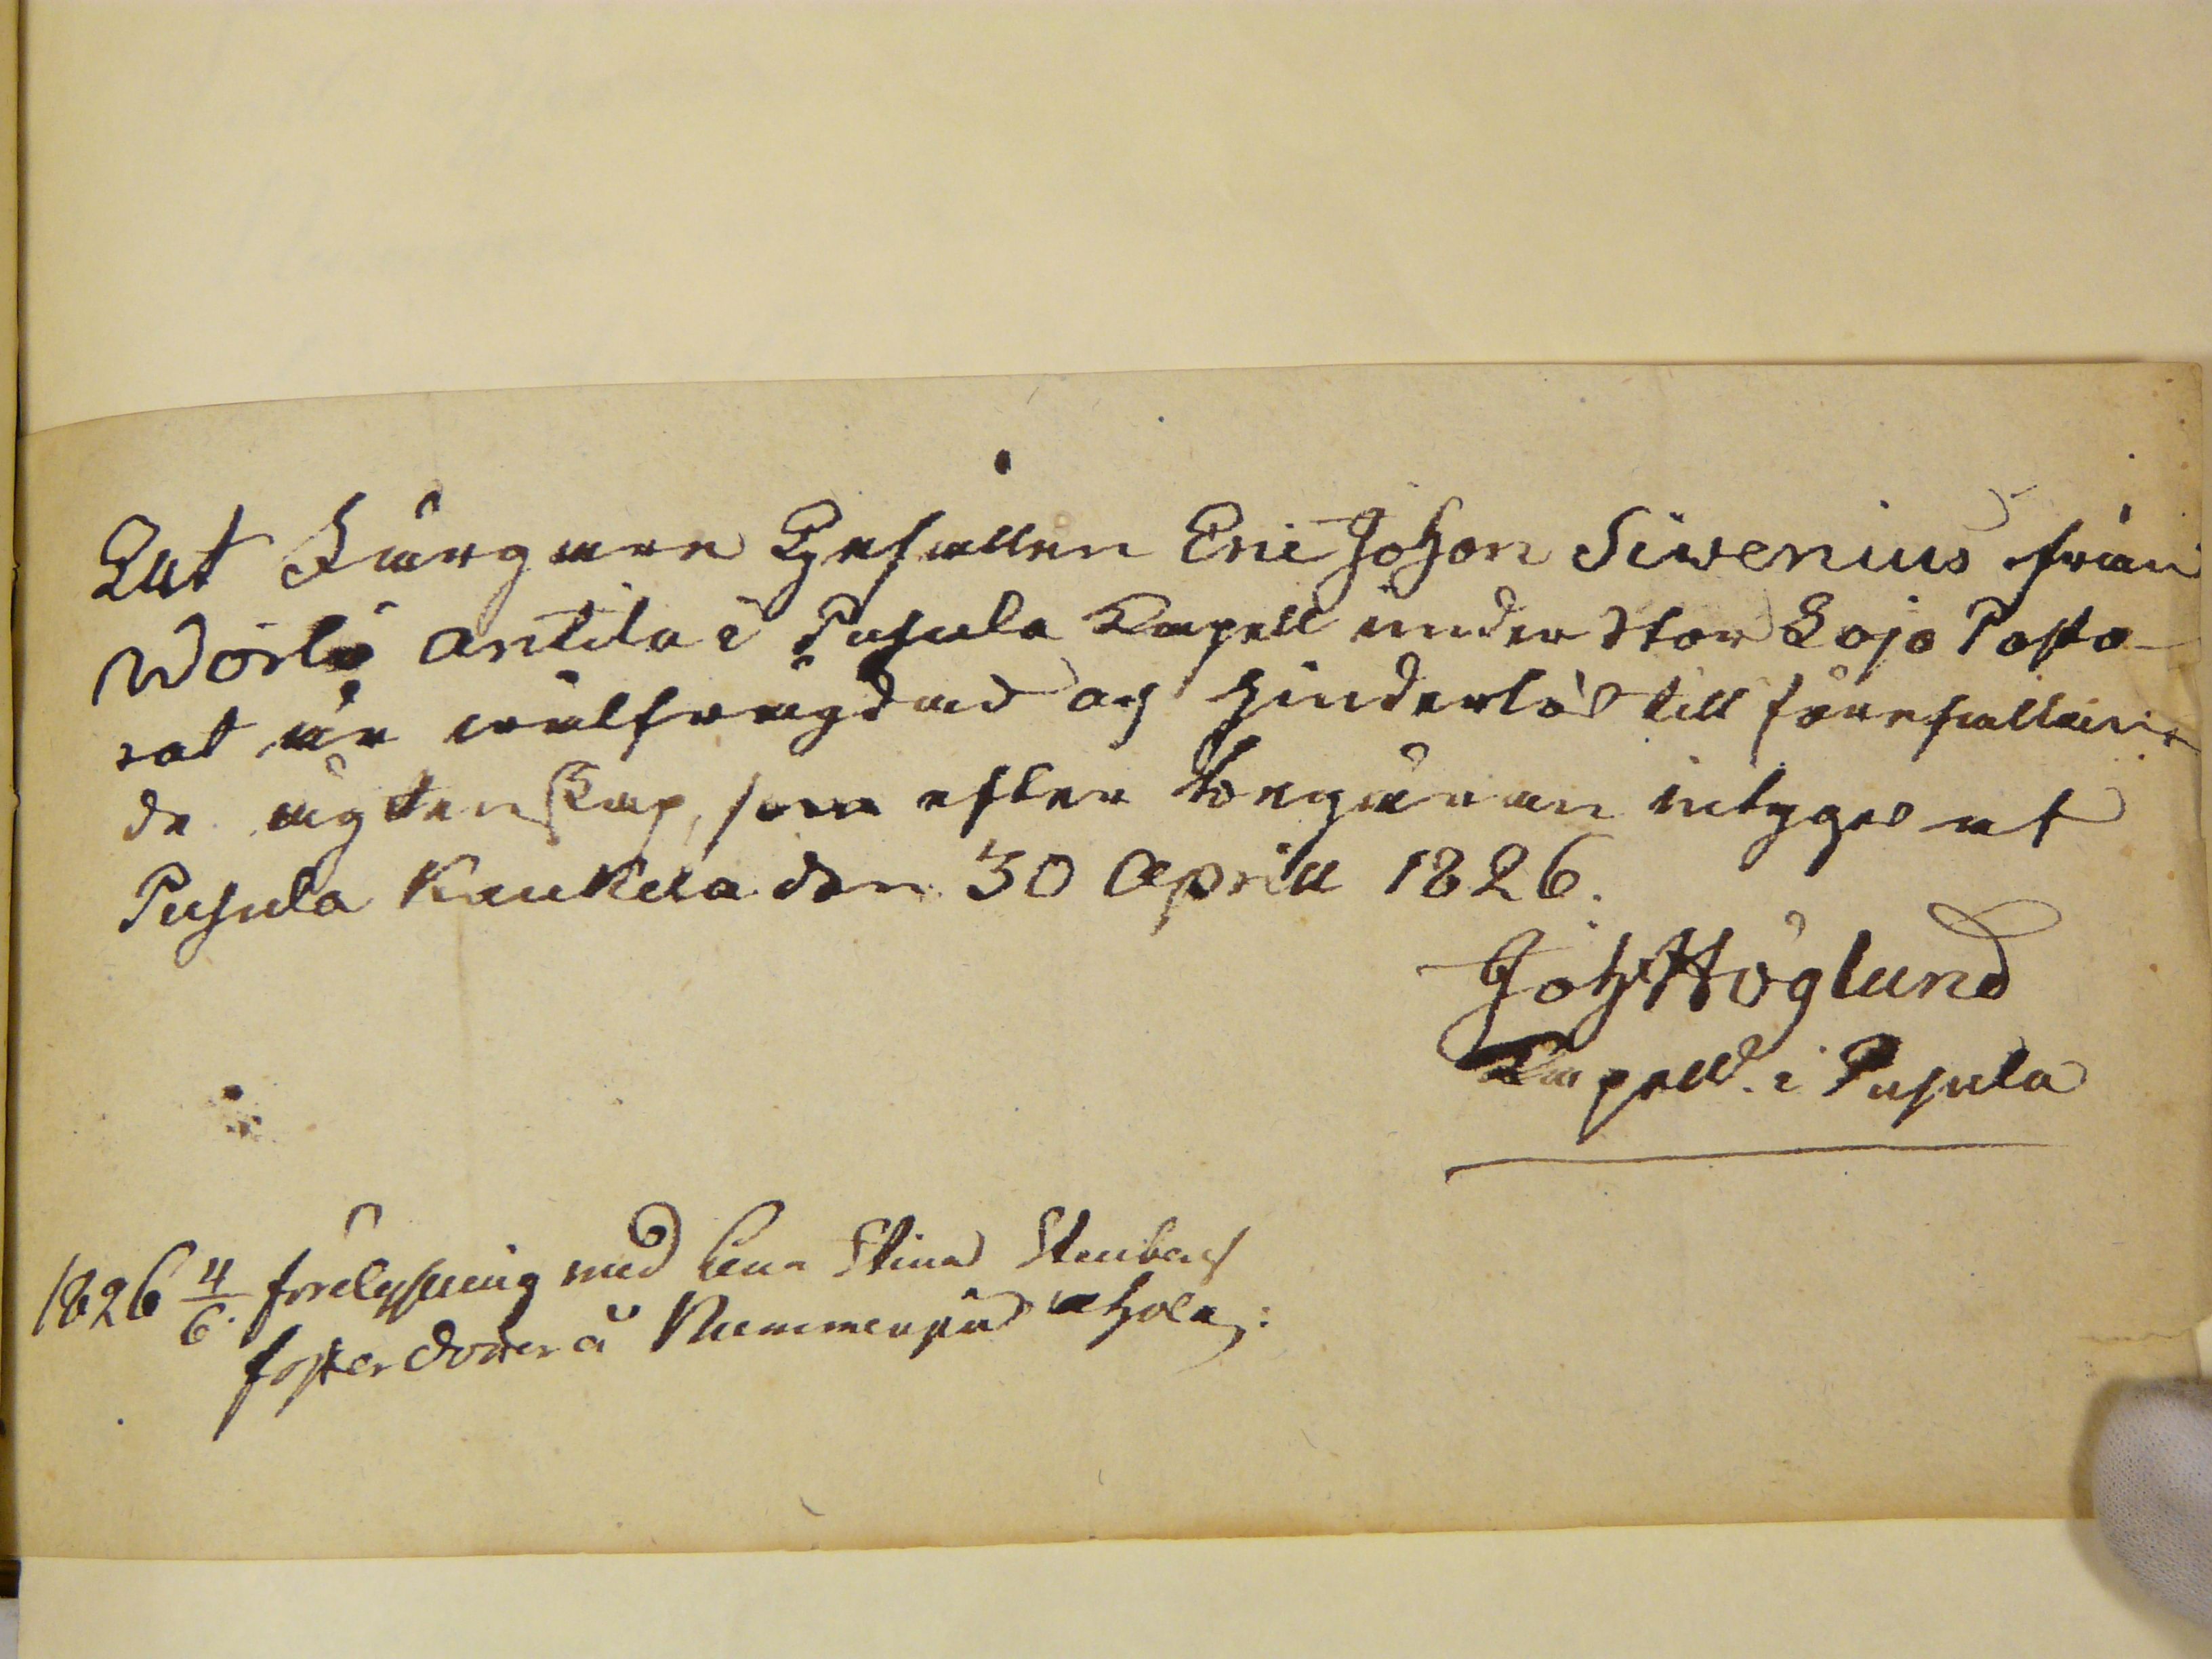 Att Färgare Gesällen Eric Johan Sivenius från
Wörlö Antila i Pusula Kapell under Stor Lojo Pasto-
rat är wälfrägdad och hinderlös till förefallan-
de ägtenskap, som efter begäran intygas af
Pusula Kaukela den 30 Aprill 1826.
Joh Höglund
Kapell. i Pusula
1826 4/6. förelysning med Anna Stina Stenbach
fosterdotter å Nummenpää